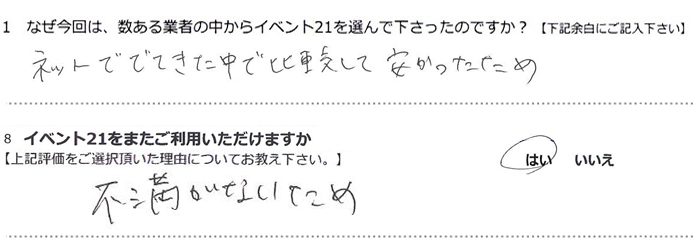 1 なぜ今回は、数ある業者の中からイベント21を選んで下さったのですか？【下記余白にご記入下さい】
ネットででてきた中で比較して安かったため
8 イベント21をまたご利用いただけますか
【上記評価をご選択頂いた理由についてお教え下さい。】 はい いいえ
不満がないため